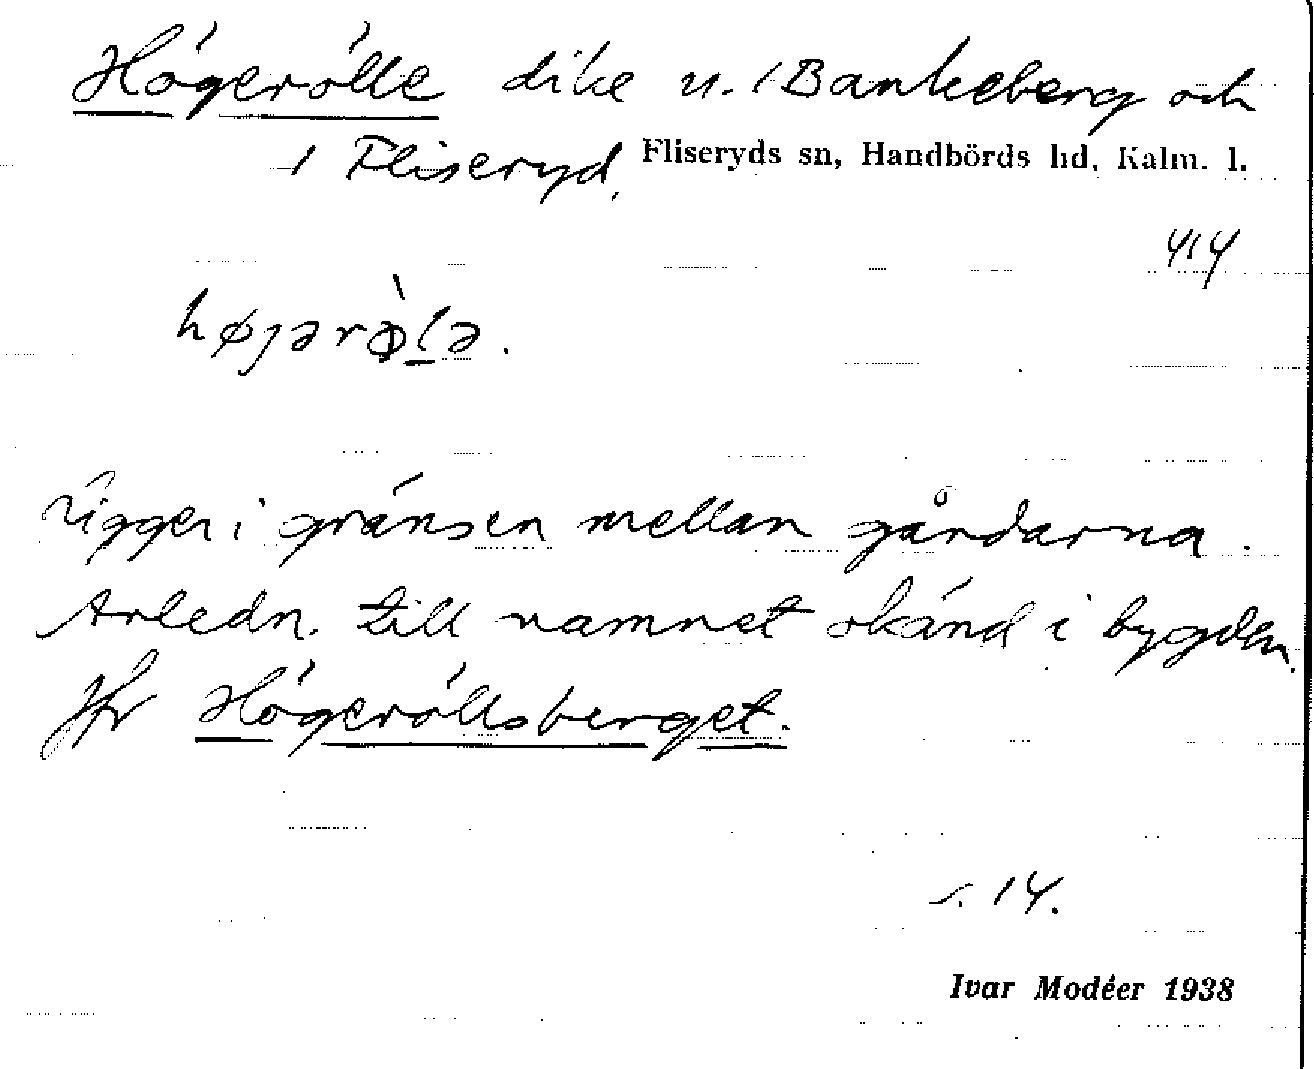 Högerölle dike u. 1 Bankeberg och
1 Fliseryd. Fliseryds sn, Handbörds hd, Kalm. l.
414
højərø̀lə.
Ligger i gränsen mellan gårdarna.
Anledn. till namnet okänd i bygden.
Jfr Högeröllsberget.
s. 14.
Ivar Modéer 1938